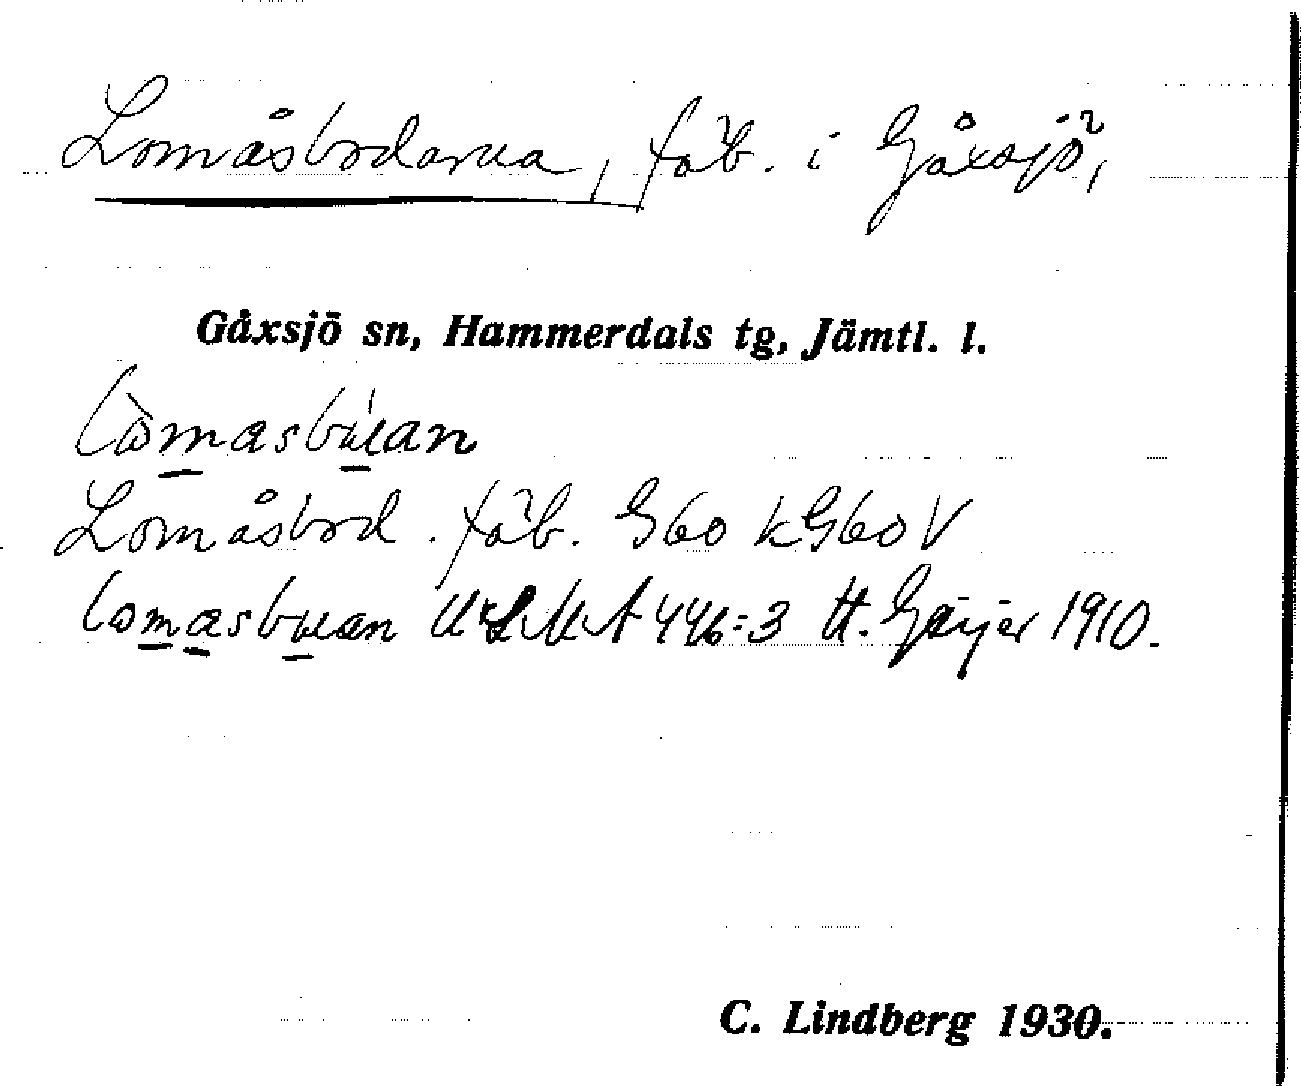 Lomåsbodarna, fäb. i Gåxsjö,
Gåxsjö sn, Hammerdals tg, Jämtl. l.
Lomåsbod. fäb. G60 kG60V
446:3 H. Geijer 1910.
C. Lindberg 1930.